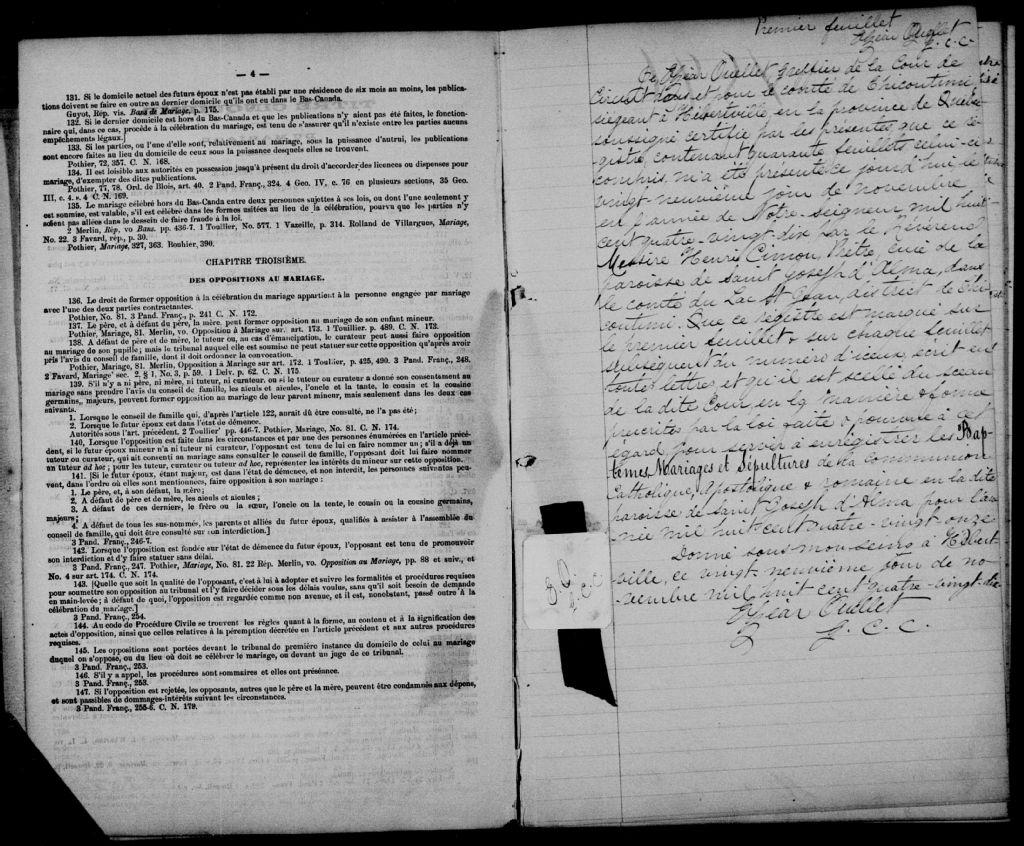 — 4 —
131. Si le domicile actuel des futurs époux n'est pas établi par une résidence de six mois au moins, les publica-
tions doivent se faire en outre au dernier domicile qu'ils ont eu dans le Bas-Canada.
Guyot, Rép. vis. Bans de Mariage, p. 175.
132. Si le dernier domicile est hors du Bas-Canada et que les publications n'y aient pas été faites, le fonction-
naire qui, dans ce cas, procède à la célébration du mariage, est tenu de s'assurer qu'il n'existe entre les parties aucuns
empêchements légaux.
133. Si les parties, ou l'une d'elles sont, relativement au mariage, sous la puissance d'autrui, les publications
sont encore faites au lieu du domicile de ceux sous la puissance desquels elles se trouvent.
Pothier, 72, 357. C. N. 168.
134. Il est loisible aux autorités en possession jusqu'à présent du droit d'accorder des licences ou dispenses pour
mariage, d'exempter des dites publications.
Pothier, 77, 78. Ord. de Blois, art. 40. 2 Pand. Franç., 324. 4 Geo. IV, c. 76 en plusieurs sections, 35 Geo.
III, c. 4. s. 4 C. N. 169.
135. Le mariage célébré hors du Bas-Canda entre deux personnes sujettes à ses lois, ou dont l'une seulement y
est soumise, est valable, s'il est célébré dans les formes usitées au lieu de la célébration, pourvu que les parties n'y
soient pas allées dans le dessein de faire fraude à la loi.
2 Merlin, Rép. vo Bans. pp. 436-7. 1 Toullier, No. 577. 1 Vazeille, p. 314. Rolland de Villargues, Mariage,
No. 22. 3 Favard, rép., p. 30.
Pothier, Mariage, 327, 363. Bouhier, 390.
CHAPITRE TROISIÈME.
DES OPPOSITIONS AU MARIAGE.
136. Le droit de former opposition à la célébration du mariage appartient à la personne engagée par mariage
avec l'une des deux parties contractantes.
Pothier, No. 81. 3 Pand. Franç., p. 241 C. N. 172.
137. Le père, et à défaut du père, la mère, peut former opposition au mariage de son enfant mineur.
Pothier, Mariage, 81. Merlin, vo. Opposition à Mariage sur. art. 173. 1 Touillier. p. 489. C. N. 173.
138. A défaut de père et de mère, le tuteur ou, au cas d'émancipation, le curateur peut aussi faire opposition
au mariage de son pupille; mais le tribunal auquel elle est soumise ne peut statuer sur cette opposition qu'après avoir
pris l'avis du conseil de famille, dont il doit ordonner la convocation.
Pothier, Mariage, 81. Merlin, Opposition à Mariage sur art. 172. 1 Toullier, p. 425, 490. 3 Pand. Franç., 248.
2 Favard, Mariage' sec. 2, § 1, No. 3, p. 59. 1 Delv. p. 62. C. N. 175.
139. S'il n'y a ni père, ni mère, ni tuteur, ni curateur, ou si le tuteur ou curateur a donné son consentement au
mariage sans prendre l'avis du conseil de famille, les aïeuls et aïeules, l'oncle et la tante, le cousin et la cousine
germains, majeurs, peuvent former opposition au mariage de leur parent mineur, mais seulement dans les deux cas
suivants.
1. Lorsque le conseil de famille qui, d'après l'article 122, aurait dû être consulté, ne l'a pas été;
2. Lorsque le futur époux est dans l'état de démence.
Autorités sous l'art. précédent. 2 Toullier' pp. 446-7. Pothier, Mariage, No. 81. C. N. 174.
140, Lorsque l'opposition est faite dans les circonstances et par une des personnes énumérées en l'article précé-
dent, si le futur époux mineur n'a ni tuteur ni curateur, l'opposant est tenu de lui en faire nommer un; s'il a déjà un
tuteur ou curateur, qui ait consenti au mariage sans consulter le conseil de famille, l'opposant doit lui faire nommer
un tuteur ad hoc; pour les tuteur, curateur ou tuteur ad hoc, représenter les intérêts du mineur sur cette opposition.
141. [Si le futur époux, étant majeur, est dans l'état de démence, et non interdit, les personnes suivantes peu-
vent, dans l'ordre où elles sont mentionnées, faire opposition à son mariage:
1. Le père, et, à son défaut, la mère;
2. A défaut de père et de mère, les aïeuls et aïeules;
3. A défaut de ces derniers, le frère ou la sœur, l'oncle ou la tente, le cousin ou la cousine germains,
majeurs;
4. A défaut de tous les sus-nommés, les parents et alliés du futur époux, qualifiés à assister à l'assemblée du
conseil de famille, qui doit être consulté sur son interdiction.]
3 Pand. Franç., 246-7.
142. Lorsque l'opposition est fondée sur l'état de démence du futur époux, l'opposant est tenu de promouvoir
son interdiction et d'y faire statuer sans délai.
3 Pand. Franç., 247. Pothier, Mariage, No. 81. 22 Rép. Merlin, vo. Opposition au Mariage, pp. 88 et suiv., et
No. 4 sur art. 174. C. N. 174.
143. [Quelle que soit la qualité de l'opposant, c'est à lui à adopter et suivre les formalités et procédures requises
pour soumettre son opposition au tribunal et l'y faire décider sous les délais voulus, sans qu'il soit besoin de demande
en main-levée; à défaut de quoi, l'opposition est regardée comme non avenue, et il est, nonobstant, passé outre à la
célébration du mariage.]
3 Pand. Franç., 254.
144. Au code de Procédure Civile se trouvent les règles quant à la forme, au contenu et à la signification des
actes d'opposition, ainsi que celles relatives à la péremption décrétée en l'article précédent et aux autres procédures
requises.
145. Les oppositions sont portées devant le tribunal de première instance du domicile de celui au mariage
duquel on s'oppose, ou du lieu où doit se célébrer le mariage, ou devant un juge de ce tribunal.
3 Pand. Franç., 253.
146. S'il y a appel, les procédures sont sommaires et elles ont préséance.
3 Pand. Franç., 253.
147. Si l'opposition est rejetée, les opposants, autres que le père et la mère, peuvent être condamnés aux dépens,
et sont passibles de dommages-intérêts suivant les circonstances.
3 Pand. Franç., 255-6. C. N. 179.
Premier feuillet
Elzéar Ouellet
G. C. C.
Je Elzéar Ouellet, greffier de la Cour de
Circuit dans et pour le comté de Chicoutimi
siégeant à Hébertville, en la province de Québec
soussigné certifie par les présentes, que ce re-
gistre, contenant quarante feuillets celui-ci
compris m'a été présenté ce jourd'hui le
vingt-neuvième jour de novembre
en l'année de Notre-Seigneur mil huit-
cent quatre-vingt dix par le Révérend
Messire Henri Cimon, Prêtre, curé de la
paroisse de saint Joseph d'Alma, dans
le comté du Lac St Jean, district de Chi-
coutimi. Que ce registre est marqué sur
le premier feuillet & sur chaque feuillet
subséquent du numéro d'iceux, écrit en
toutes lettres, et qu'il est scellé du sceau
de la dite Cour, en la manière & forme
prescrites par la loi faite & pourvue à cet
égard. Pour servir à enregistrer les Bap-
têmes, Mariages et Sépultures de la communion
Catholique, Apostolique & romaine en la dite
paroisse de saint Joseph d'Alma pour l'an-
née mil huit cent quatre-vingt onze
Donné sous mon seing à Hébert-
ville, ce vingt-neuvième jour de no-
vembre mil huit cent quatre-vingt-dix
Elzéar Ouellet
G. C. C.